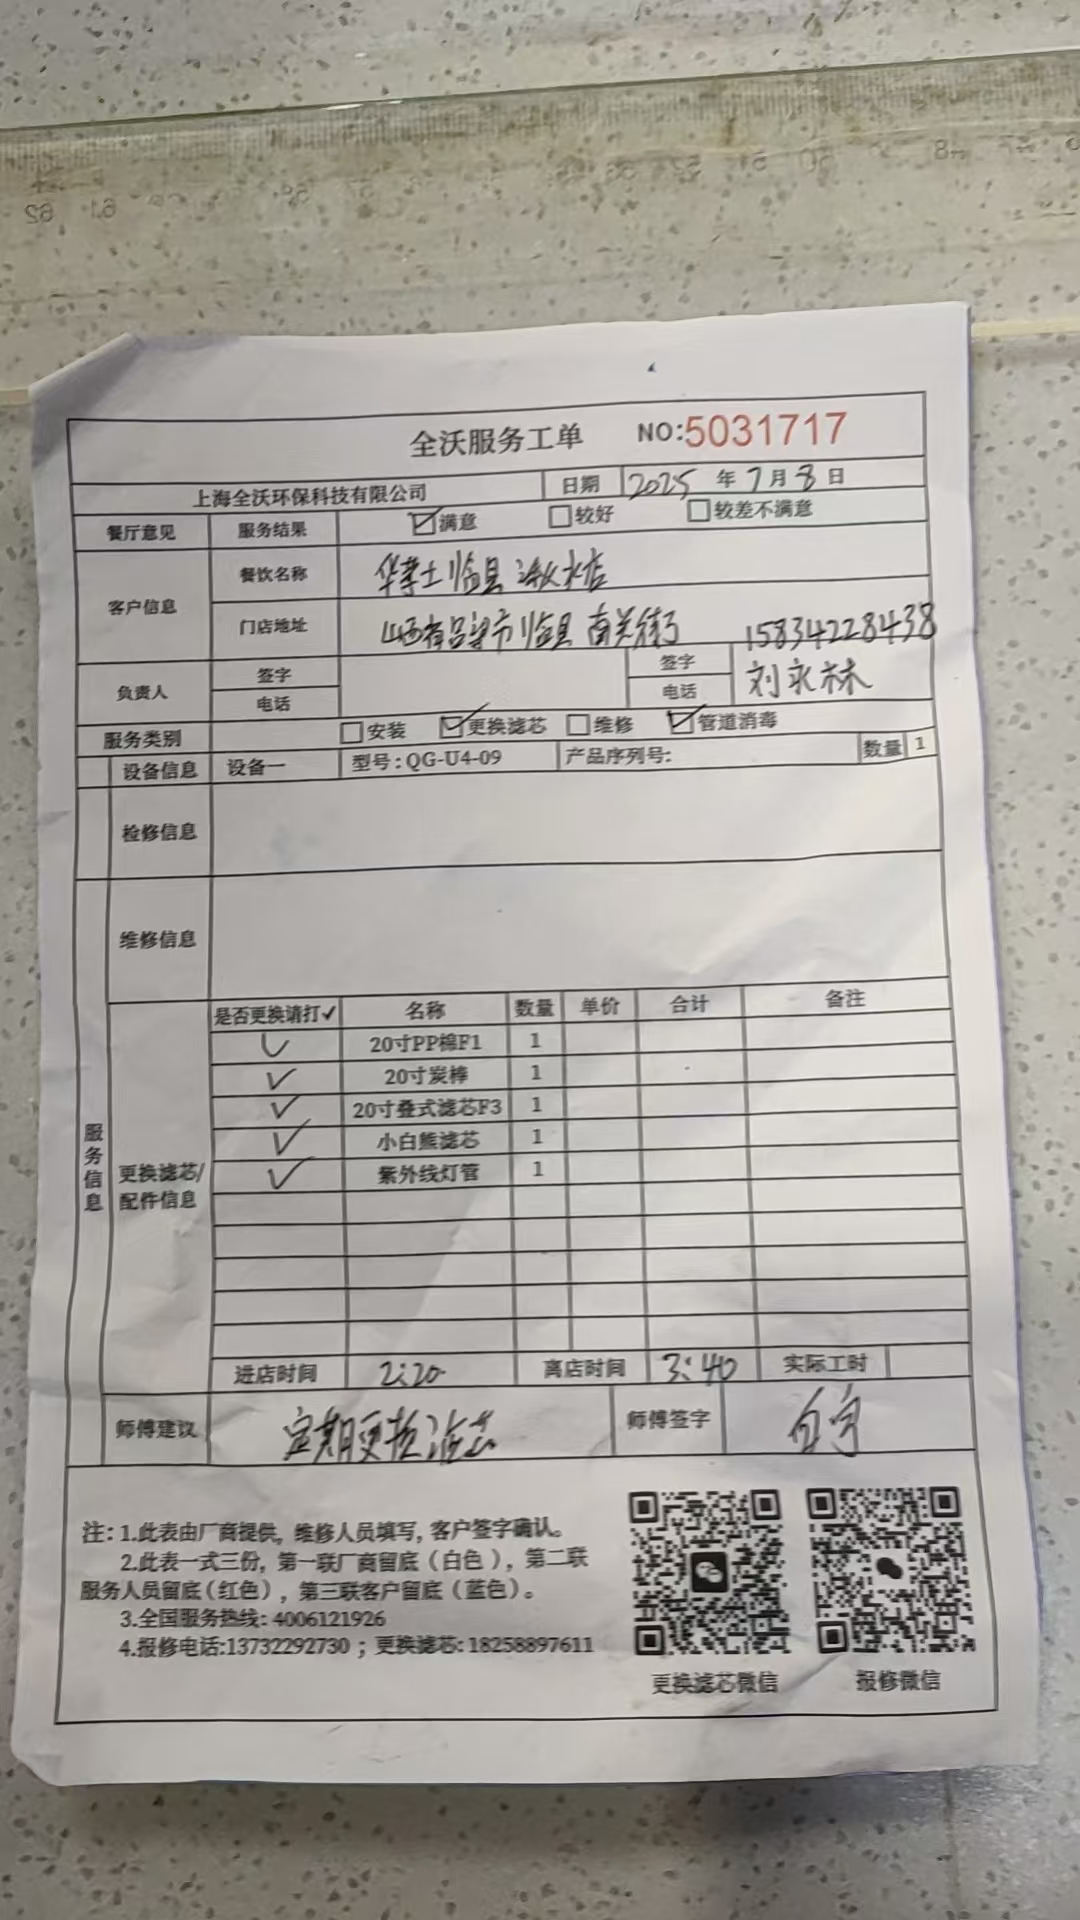 全沃服务工单 NO:5031717
上海全沃环保科技有限公司 日期 2025 年 7 月 8 日
餐厅意见 服务结果 满意 较好 较差不满意
客户信息 餐饮名称 华莱士临县 店
门店地址 山西省吕梁市临县 南关街 15834228438
负责人 签字 签字 刘永林
电话 电话
服务类别 安装 更换滤芯 维修 管道消毒
设备信息 设备一 型号:QG-U4-09 产品序列号: 数量 1
检修信息
维修信息
服务信息
更换滤芯/
配件信息
是否更换请打✓ 名称 数量 单价 合计 备注
✓ 20寸PP棉F1 1
✓ 20寸炭棒 1
✓ 20寸叠式滤芯F3 1
✓ 小白熊滤芯 1
✓ 紫外线灯管 1
进店时间 2:20 离店时间 3:40 实际工时
师傅建议 定期更换滤芯 师傅签字
注: 1.此表由厂商提供, 维修人员填写, 客户签字确认。
2.此表一式三份, 第一联厂商留底(白色), 第二联
服务人员留底(红色), 第三联客户留底(蓝色)。
3.全国服务热线: 4006121926
4.报修电话:13732292730 ; 更换滤芯: 18258897611
更换滤芯微信 报修微信
62 61 59 53 52 51 50 48